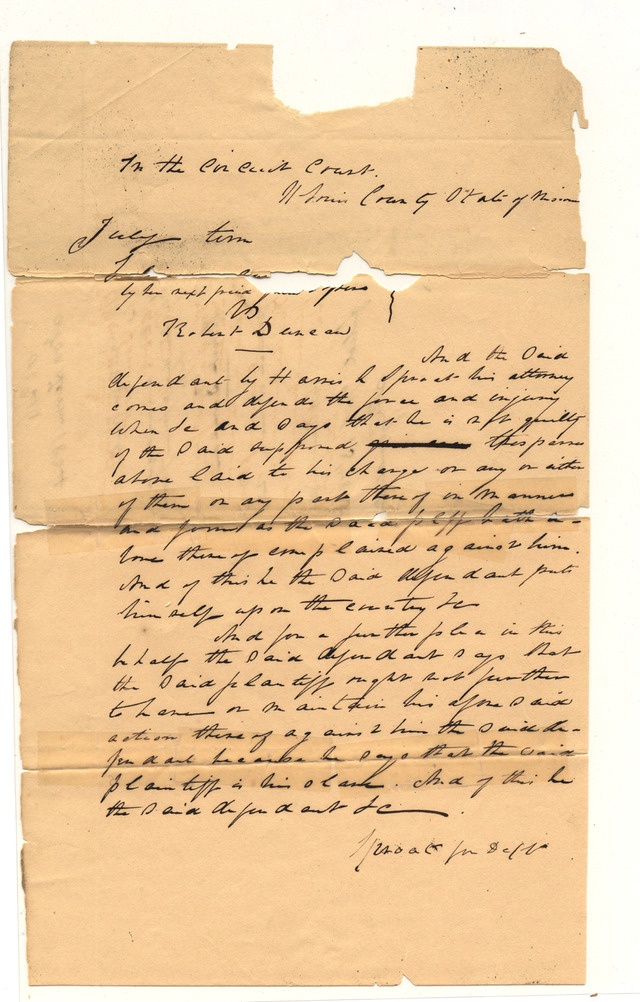 In the Circuit Court.
St Louis County State of Missou
July term
by her next friend
vs
Robert Duncan
And the Said
defendant by Harris L Sproat his attorney
comes and defends the force and injury
when &c and says that he is not guilty
of the Said supposed trespasses
above laid to his charge or any or either
of them or any part thereof in manner
and form as the said pltff hath a-
bove thereof complained against him.
And of this he the Said defendant puts
himself upon the country &c
And for a further plea in this
behalf the said defendant says that
the said plaintiff ought not further
to have or maintain his aforesaid
action thereof against him the Said de-
fendant because he says that the said
plaintiff is his slave. And of this he
the said defendant &c
Sproat for Deft